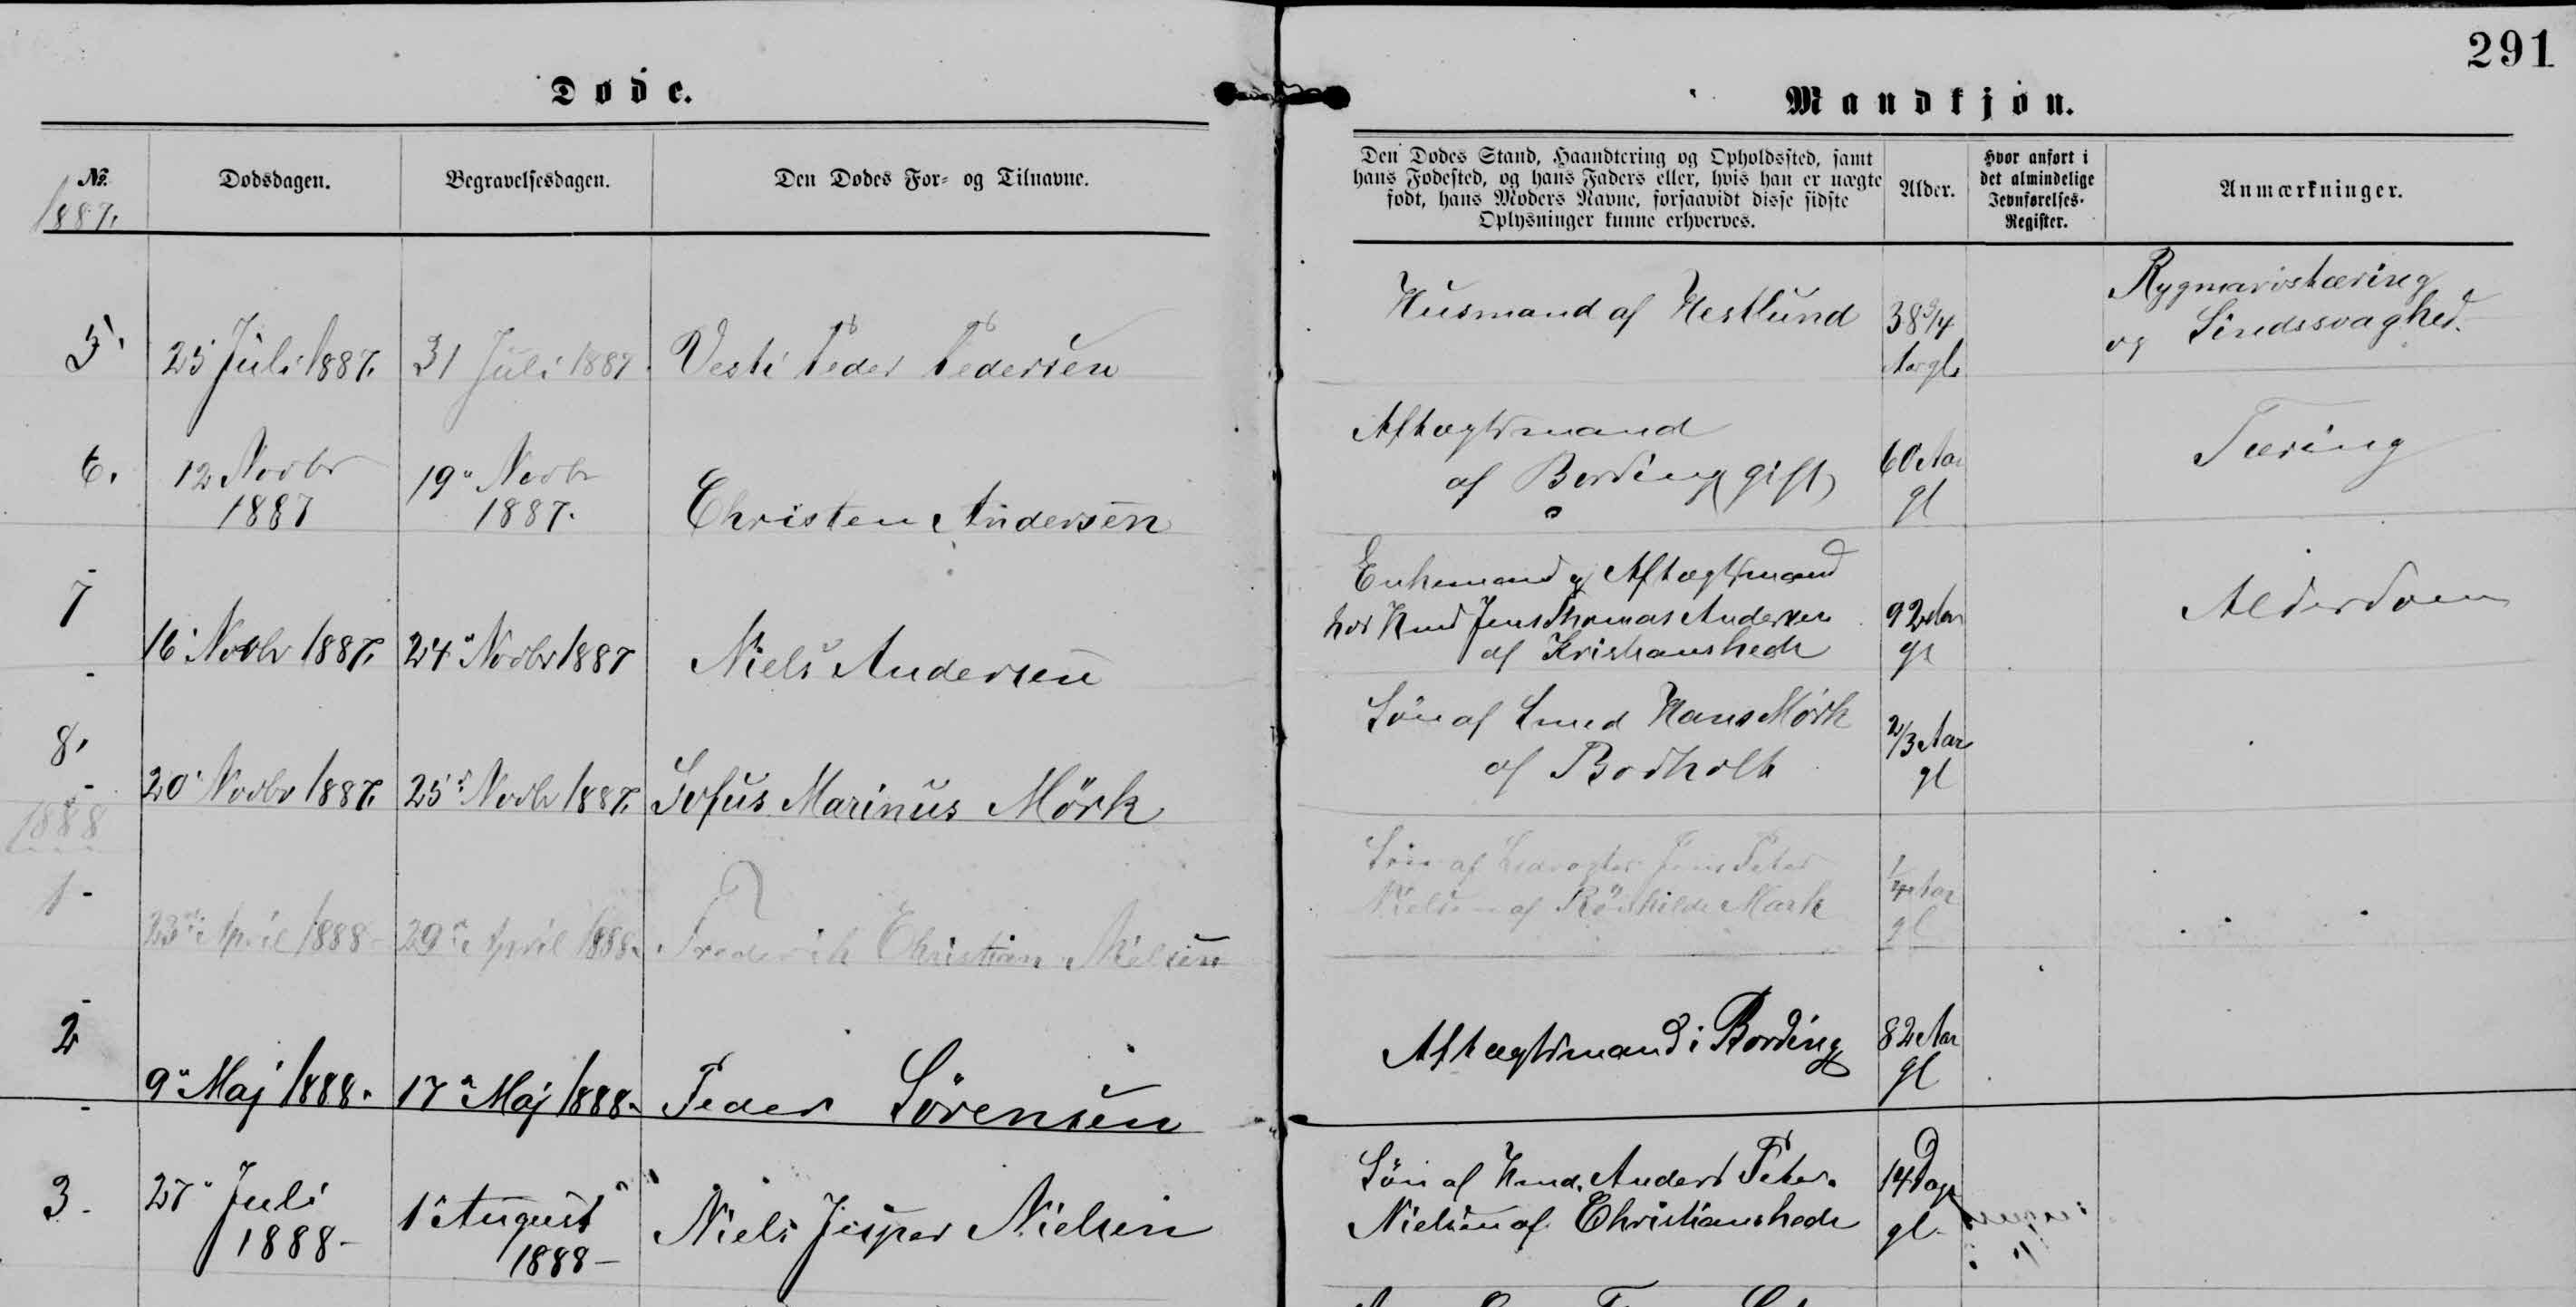 291
Døde.
Mandkjøn.
No.
1887.
Dødsdagen.
Begravelsesdagen.
Den Dødes For- og Tilnavne.
Den Dødes Stand, Haandtering og Opholdssted, samt
hans Fødested, og hans Faders eller, hvis han er uægte
født, hans Moders Navne, forsaavidt disse sidste
Oplysninger kunne erhverves.
Alder.
Hvor anført i
det almindelige
Jevnførelses-
Register.
Anmærkninger.
5.
25 Juli 1887.
31 Juli 1887.
Vesti Peder Pedersen
Husmand af Hestlund
38 3/4
Aar gl.
Rygmarvstæring
og Sindssvaghed.
6.
12 Novbr
1887
19" Novbr
1887.
Christen Andersen
Aftægtsmand
af Bording gift
60 Aar
gl
Tæring
7
16 Novbr 1887.
24" Novbr 1887
Niels Andersen
Enkemand og Aftægtsmand
hos Hmd Jens Thomas Andersen
af Kristianshede
92 Aar
gl
Alderdom
8.
20 Novbr 1887.
25" Novbr 1887.
Sofus Marinus Mörk
Sön af Smed Hans Mörk
af Bodholt
2/3 Aar
gl
1888
1-
23de April 1888-
29de April 1888.
Frederik Christian Nielsen
Sön af Jens Peter
Nielsen af Mark
1/4 Aar
gl
2
9" Maj 1888.
17" Maj 1888.
Peder Sörensen
Aftægtsmand i Bording
82 Aar
gl
3.
27" Juli
1888-
1" August
1888-
Niels Jesper Nielsen
Sön af Hmd. Anders Peter
Nielsen af Christianshede
14 Dage
gl.